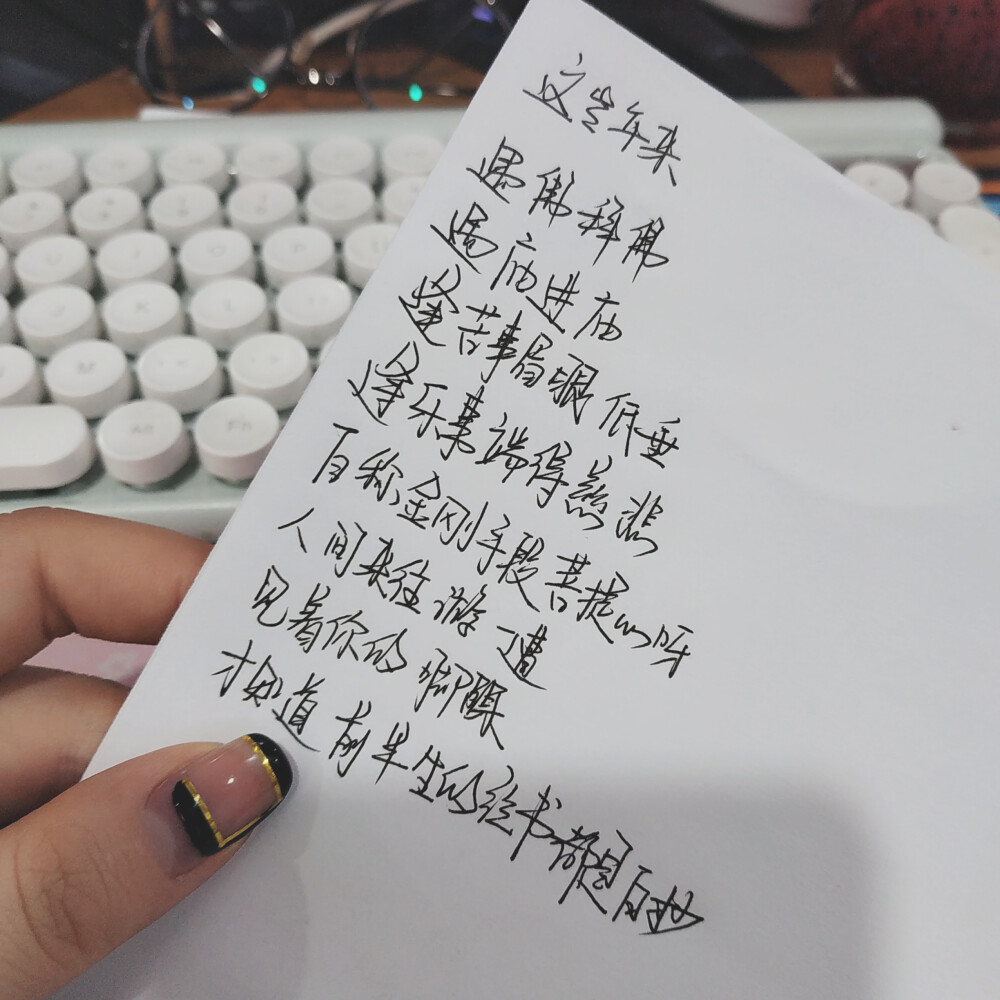 这些年来
遇佛称佛
遇庙进庙
逢苦事眉眼低垂
逢乐事端得慈悲
自称金刚手段菩提心呀
人间来往游一遭
见着你的脚踝
才知道前半生的经书都是白抄
Alt
Fn
M
K
L
U